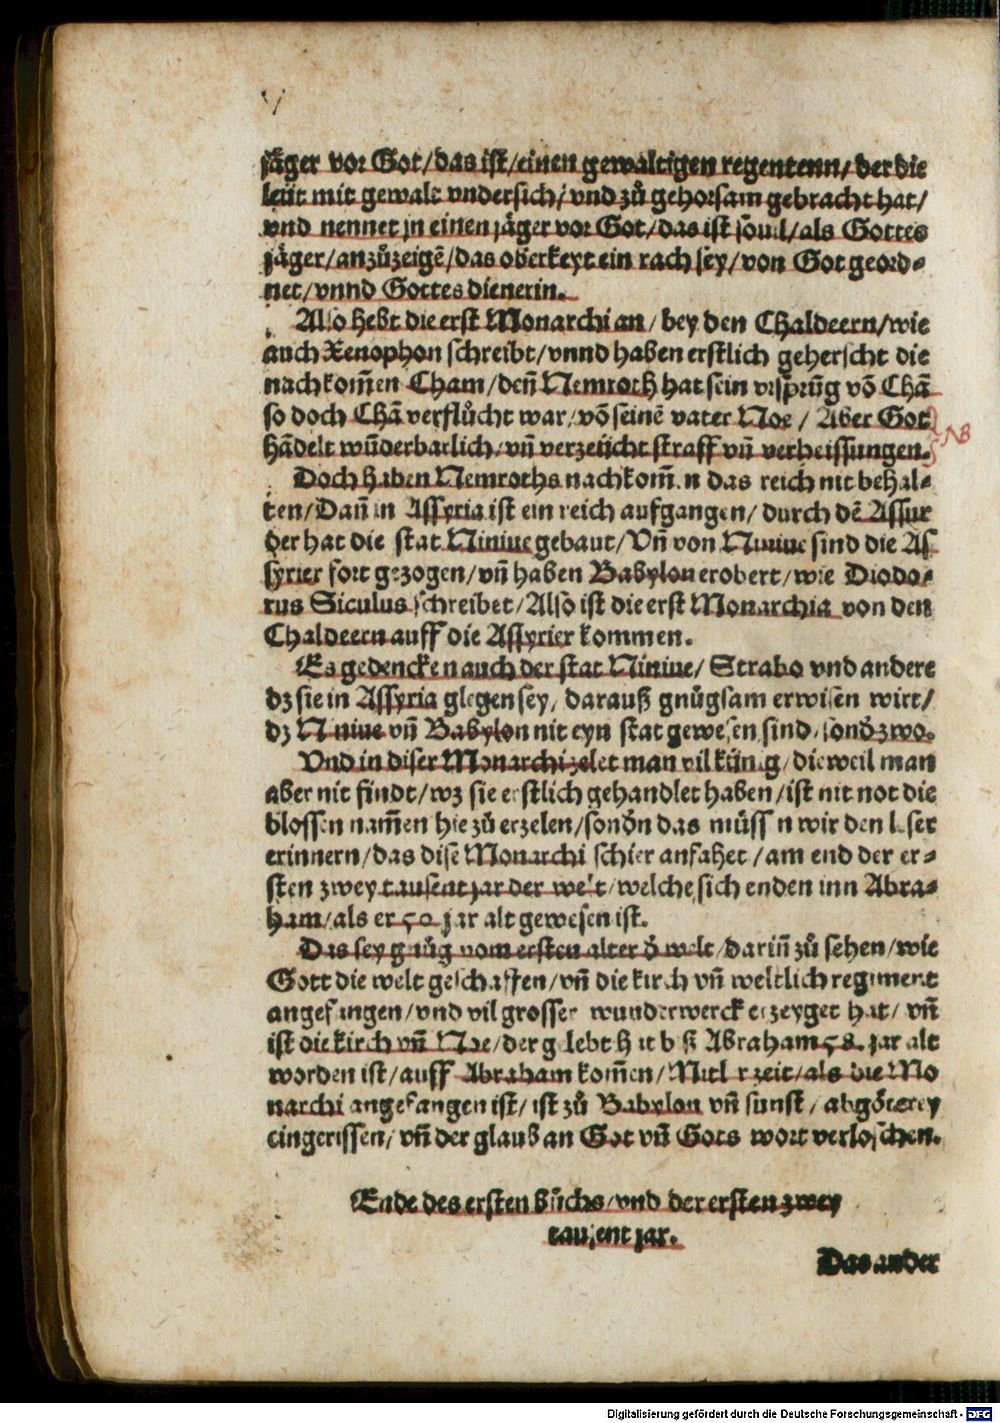 jäger vor Got/das ist/einen gewaltigen regentenn/der die
leüt mit gewalt vndersich/vnd zů gehorsam gebracht hat/
vnd nennet jn einen jäger vor Got/das ist souil/als Gottes
jäger/anzůzeigē/das oberkeyt ein rach sey/von Got geord-
net/vnnd Gottes dienerin.
Also hebt die erst Monarchi an/bey den Chaldeern/wie
auch Xenophon schreibt/vnnd haben erstlich geherscht die
nachkom̄en Cham/den̄ Nemroth hat sein vrsprūg vō Chā
so doch Chā verflůcht war/vō seinē vater Noe/Aber Got
hādelt wūderbarlich/vn̄ verzeücht straff vn̄ verheissungen.
NB
Doch haben Nemroths nachkom̄en das reich nit behal-
ten/Dan̄ in Assyria ist ein reich aufgangen/durch dē Assur
der hat die stat Niniue gebaut/Vn̄ von Niniue sind die As-
syrier fort gezogen/vn̄ haben Babylon erobert/wie Diodo-
rus Siculus schreibet/Also ist die erst Monarchia von den
Chaldeern auff die Assyrier kommen.
Es gedencken auch der stat Niniue/Strabo vnd andere
dz sie in Assyria glegen sey/darauß gnůgsam erwisen wirt/
dz Niniue vn̄ Babylon nit eyn stat gewesen sind/sond̄ zwo.
Vnd in diser Monarchi zelet man vil künig/dieweil man
aber nit findt/wz sie erstlich gehandlet haben/ist nit not die
blossen nam̄en hie zů erzelen/sond̄n das müssen wir den leser
erinnern/das dise Monarchi schier anfahet/am end der er-
sten zwey tausent jar der welt/welche sich enden inn Abra-
ham/als er 50 jar alt gewesen ist.
Das sey gnůg vom ersten alter d̄ welt/darin̄ zů sehen/wie
Gott die welt geschaffen/vn̄ die kirch vn̄ weltlich regiment
angefangen/vnd vil grosser wunderwerck erzeyget hat/vn̄
ist die kirch vn̄ Noe/der gelebt hat biß Abraham 58. jar alt
worden ist/auff Abraham kom̄en/Mitler zeit/als die Mo
narchi angefangen ist/ist zů Babylon vn̄ sunst/abgötterey
eingerissen/vn̄ der glaub an Got vn̄ Gots wort verloschen.
Ende des ersten bůchs/vnd der ersten zwey
tausent jar.
Das ander
Digitalisierung gefördert durch die Deutsche Forschungsgemeinschaft - DFG